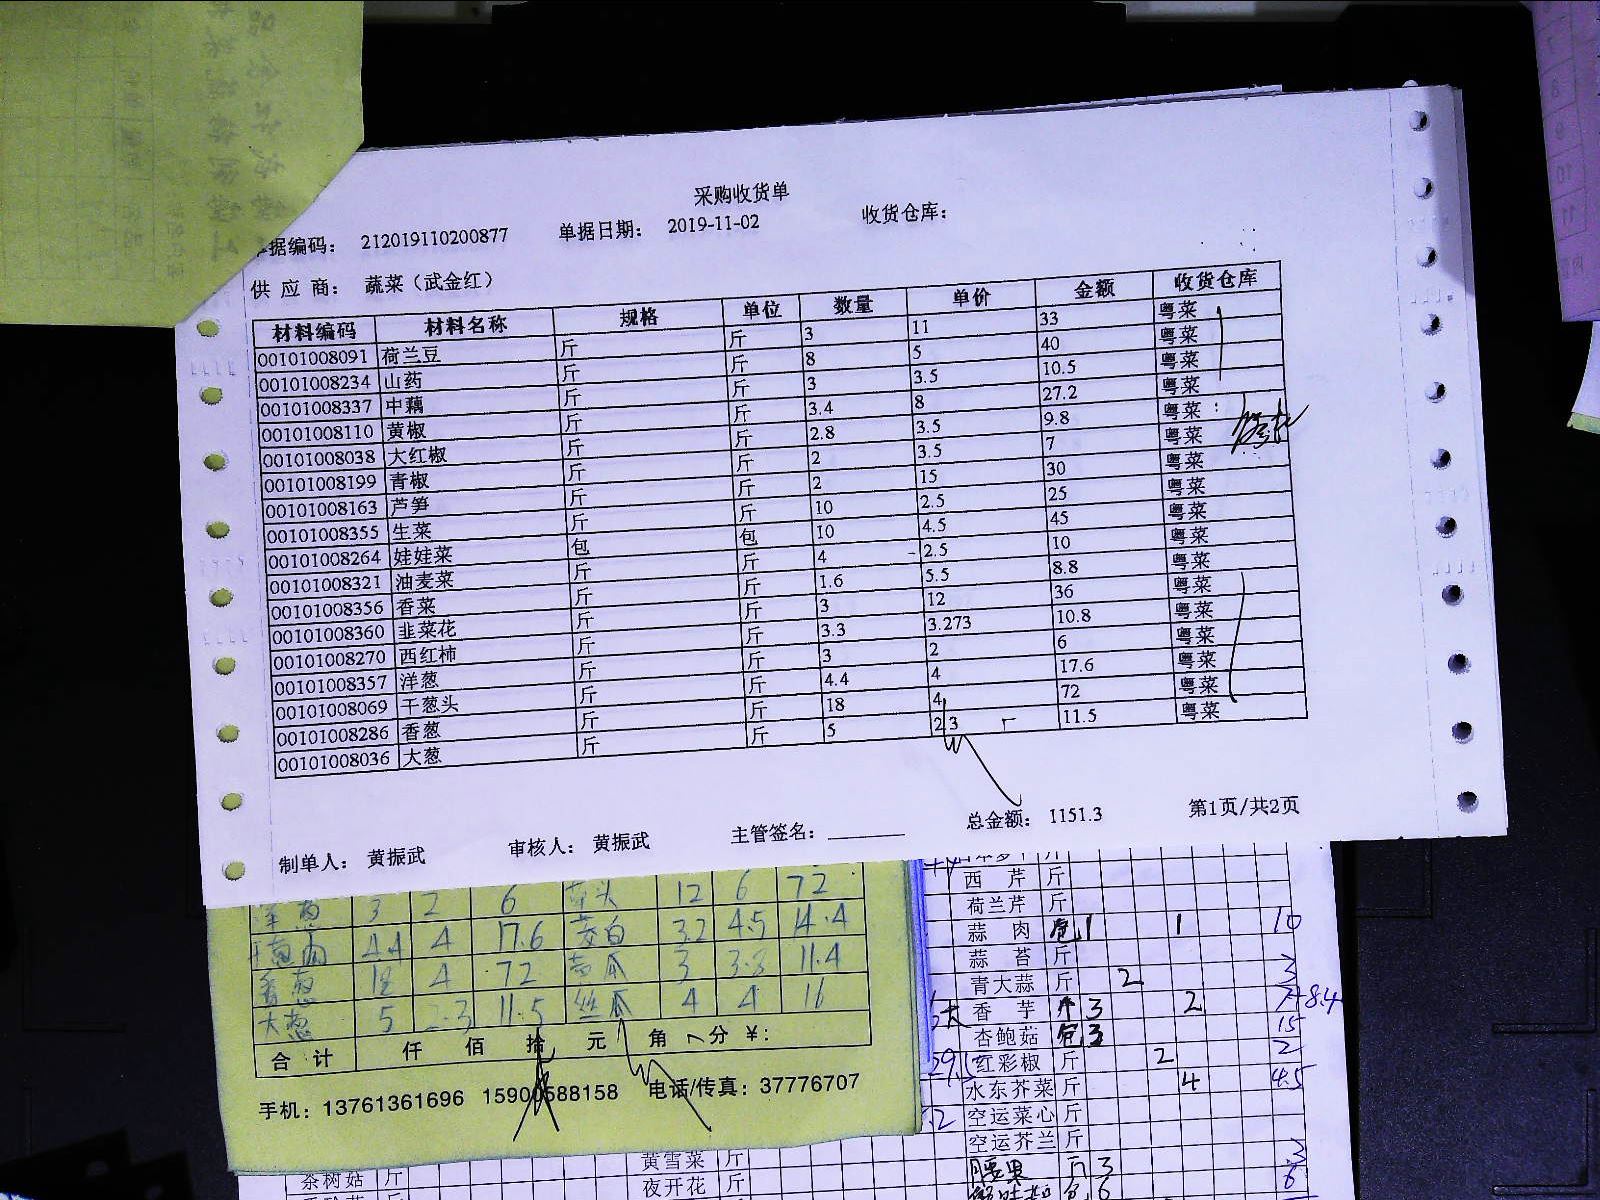 采购收货单
据编码： 212019110200877 单据日期： 2019-11-02 收货仓库：
供 应 商： 蔬菜（武金红）
材料编码 材料名称 规格 单位 数量 单价 金额 收货仓库
00101008091 荷兰豆 斤 斤 3 11 33 粤菜
00101008234 山药 斤 斤 8 5 40 粤菜
00101008337 中藕 斤 斤 3 3.5 10.5 粤菜
00101008110 黄椒 斤 斤 3.4 8 27.2 粤菜
00101008038 大红椒 斤 斤 2.8 3.5 9.8 粤菜
00101008199 青椒 斤 斤 2 3.5 7 粤菜
00101008163 芦笋 斤 斤 2 15 30 粤菜
00101008355 生菜 斤 斤 10 2.5 25 粤菜
00101008264 娃娃菜 包 包 10 4.5 45 粤菜
00101008321 油麦菜 斤 斤 4 2.5 10 粤菜
00101008356 香菜 斤 斤 1.6 5.5 8.8 粤菜
00101008360 韭菜花 斤 斤 3 12 36 粤菜
00101008270 西红柿 斤 斤 3.3 3.273 10.8 粤菜
00101008357 洋葱 斤 斤 3 2 6 粤菜
00101008069 干葱头 斤 斤 4.4 4 17.6 粤菜
00101008286 香葱 斤 斤 18 4 72 粤菜
00101008036 大葱 斤 斤 5 2.3 11.5 粤菜
制单人： 黄振武 审核人： 黄振武 主管签名： 总金额： 1151.3 第1页/共2页
洋葱 3 2 6 12 6 72
4.4 4 17.6 茭白 3.2 4.5 14.4
香葱 18 4 72 3 3.8 11.4
大葱 5 2.3 11.5 丝瓜 4 4 16
合 计 仟 佰 拾 元 角 分 ￥:
手机：13761361696 15900588158 电话/传真：37776707
西 芹 斤
荷兰芹 斤
蒜 肉 包 1 1 10
蒜 苔 斤
青大蒜 斤 2 3
香 芋 3 2 8.4
杏鲍菇 包 3 15
红彩椒 斤 2 2
水东芥菜 斤 4 4.5
空运菜心 斤
空运芥兰 斤
腰果 斤 3 3
茶树菇 斤
黄雪菜 斤
夜开花 斤